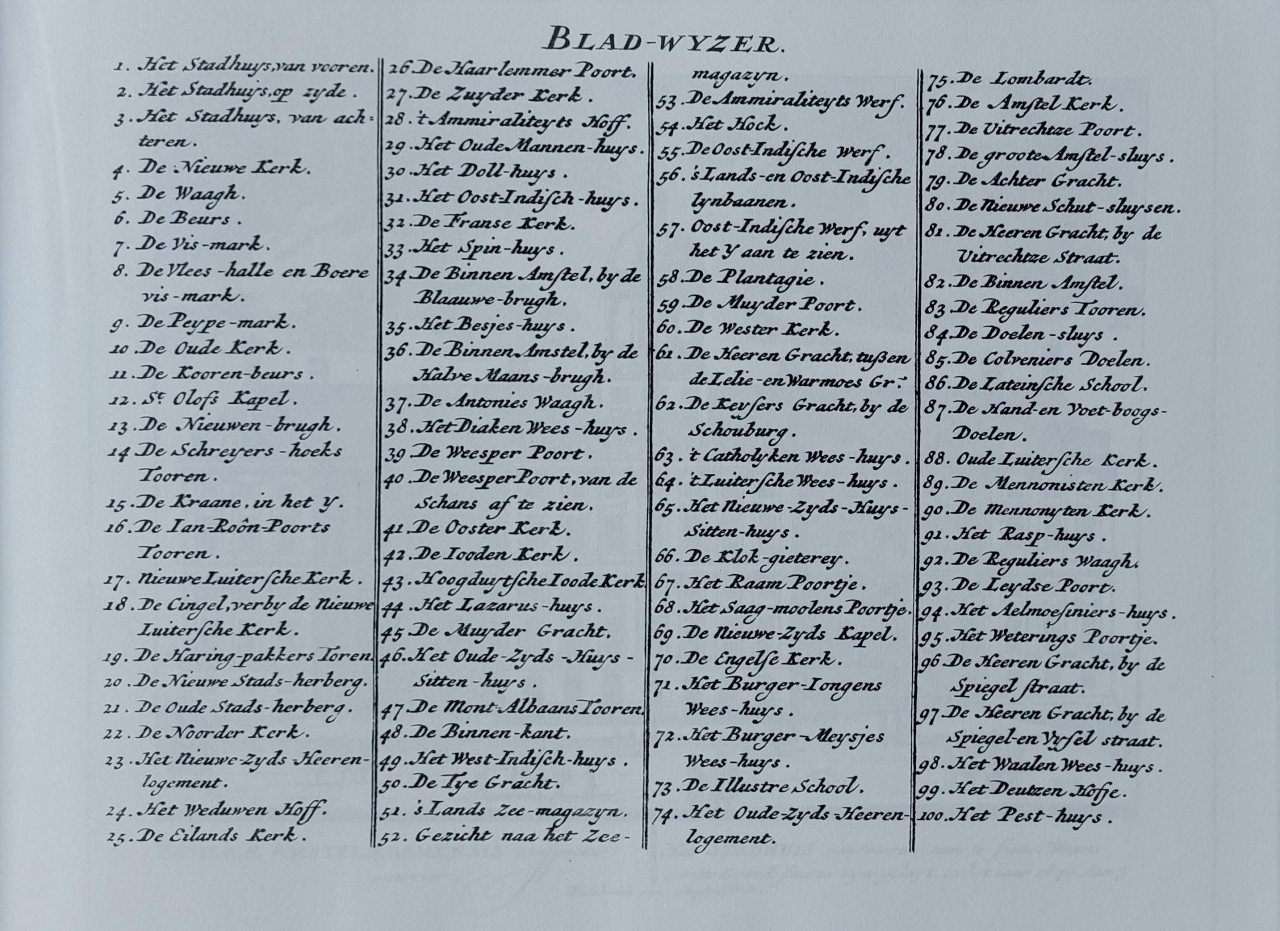 BLAD-WYZER.
1. Het Stadhuys, van vooren.
2. Het Stadhuys, op zyde.
3. Het Stadhuys, van ach-
teren.
4. De Nieuwe Kerk.
5. De Waagh.
6. De Beurs.
7. De Vis-mark.
8. De Vlees-halle en Boere
vis-mark.
9. De Peype-mark.
10. De Oude Kerk.
11. De Kooren-beurs.
12. St. Olofs Kapel.
13. De Nieuwen-brugh.
14 De Schreyers-hoeks
Tooren.
15. De Kraane, in het Y.
16. De Ian-Roôn-Poorts
Tooren.
17. Nieuwe Luitersche Kerk.
18. De Cingel, verby de Nieuwe
Luitersche Kerk.
19. De Haring-pakkers Toren
20. De Nieuwe Stads-herberg.
21. De Oude Stads-herberg.
22. De Noorder Kerk.
23. Het Nieuwe-Zyds Heeren-
logement.
24. Het Weduwen Hoff.
25. De Eilands Kerk.
26 De Haarlemmer Poort.
27. De Zuyder Kerk.
28. 't Ammiraliteyts Hoff.
29. Het Oude Mannen-huys.
30. Het Doll-huys.
31. Het Oost-Indisch-huys.
32. De Franse Kerk.
33. Het Spin-huys.
34 De Binnen Amstel, by de
Blaauwe-brugh.
35. Het Besjes-huys.
36. De Binnen Amstel, by de
Halve Maans-brugh.
37. De Antonies Waagh.
38. Het Diaken Wees-huys.
39 De Weesper Poort.
40. De Weesper Poort, van de
Schans af te zien.
41. De Ooster Kerk.
42. De Iooden Kerk.
43. Hoogduytsche Ioode Kerk
44. Het Lazarus-huys.
45. De Muyder Gracht.
46. Het Oude-Zyds-Huys-
Sitten-huys.
47 De Mont Albaans Tooren.
48. De Binnen-kant.
49. Het West-Indisch-huys.
50. De Tye Gracht.
51. 's Lands Zee-magazyn.
52. Gezicht naa het Zee-
magazyn.
53. De Ammiraliteyts Werf.
54. Het Hock.
55. De Oost-Indische Werf.
56. 's Lands-en Oost-Indische
lynbaanen.
57. Oost-Indische Werf, uyt
het Y aan te zien.
58. De Plantagie.
59. De Muyder Poort.
60. De Wester Kerk.
61. De Heeren Gracht, tußen
de Lelie-en Warmoes Gr:
62. De Keysers Gracht, by de
Schouburg.
63. 't Catholyken Wees-huys.
64. 't Luitersche Wees-huys.
65. Het Nieuwe-Zyds-Huys-
Sitten-huys.
66. De Klok-gieterey.
67. Het Raam Poortje.
68. Het Saag-moolens Poortje.
69. De Nieuwe-Zyds Kapel.
70. De Engelse Kerk.
71. Het Burger-Iongens
Wees-huys.
72. Het Burger-Meysjes
Wees-huys.
73. De Illustre School.
74. Het Oude-Zyds-Heeren-
logement.
75. De Lombardt.
76. De Amstel Kerk.
77. De Uitrechtze Poort.
78. De groote Amstel-sluys.
79. De Achter Gracht.
80. De Nieuwe Schut-sluysen.
81. De Heeren Gracht, by de
Uitrechtze Straat.
82. De Binnen Amstel.
83. De Reguliers Tooren.
84. De Doelen-sluys.
85. De Colveniers Doelen.
86. De Lateinsche School.
87. De Hand-en Voet-boogs-
Doelen.
88. Oude Luitersche Kerk.
89. De Mennonisten Kerk.
90. De Mennonyten Kerk.
91. Het Rasp-huys.
92. De Reguliers Waagh.
93. De Leydse Poort.
94. Het Aelmoesiniers-huys.
95. Het Weterings Poortje.
96 De Heeren Gracht, by de
Spiegel straat.
97. De Heeren Gracht, by de
Spiegel-en Vysel straat.
98. Het Waalen Wees-huys.
99. Het Deutzen Hofje.
100. Het Pest-huys.